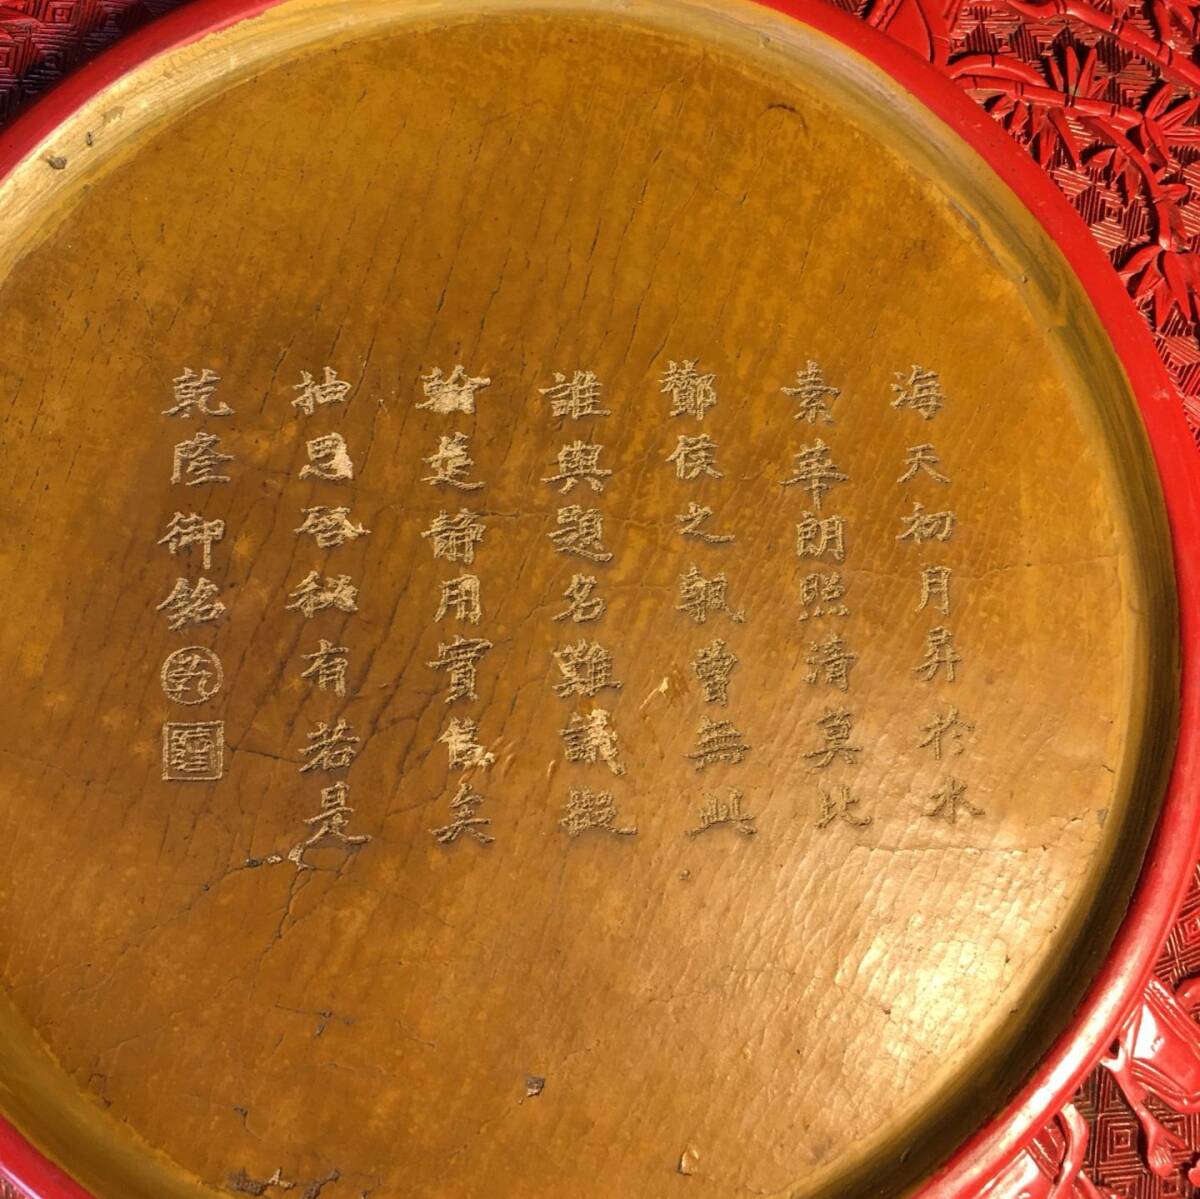 海天初月升於水
素華朗照清莫比
鄴侯之瓢曾無此
誰與題名難議擬
翰筵靜用實佳矣
抽思啓秘有若是
乾隆御銘
乾
隆